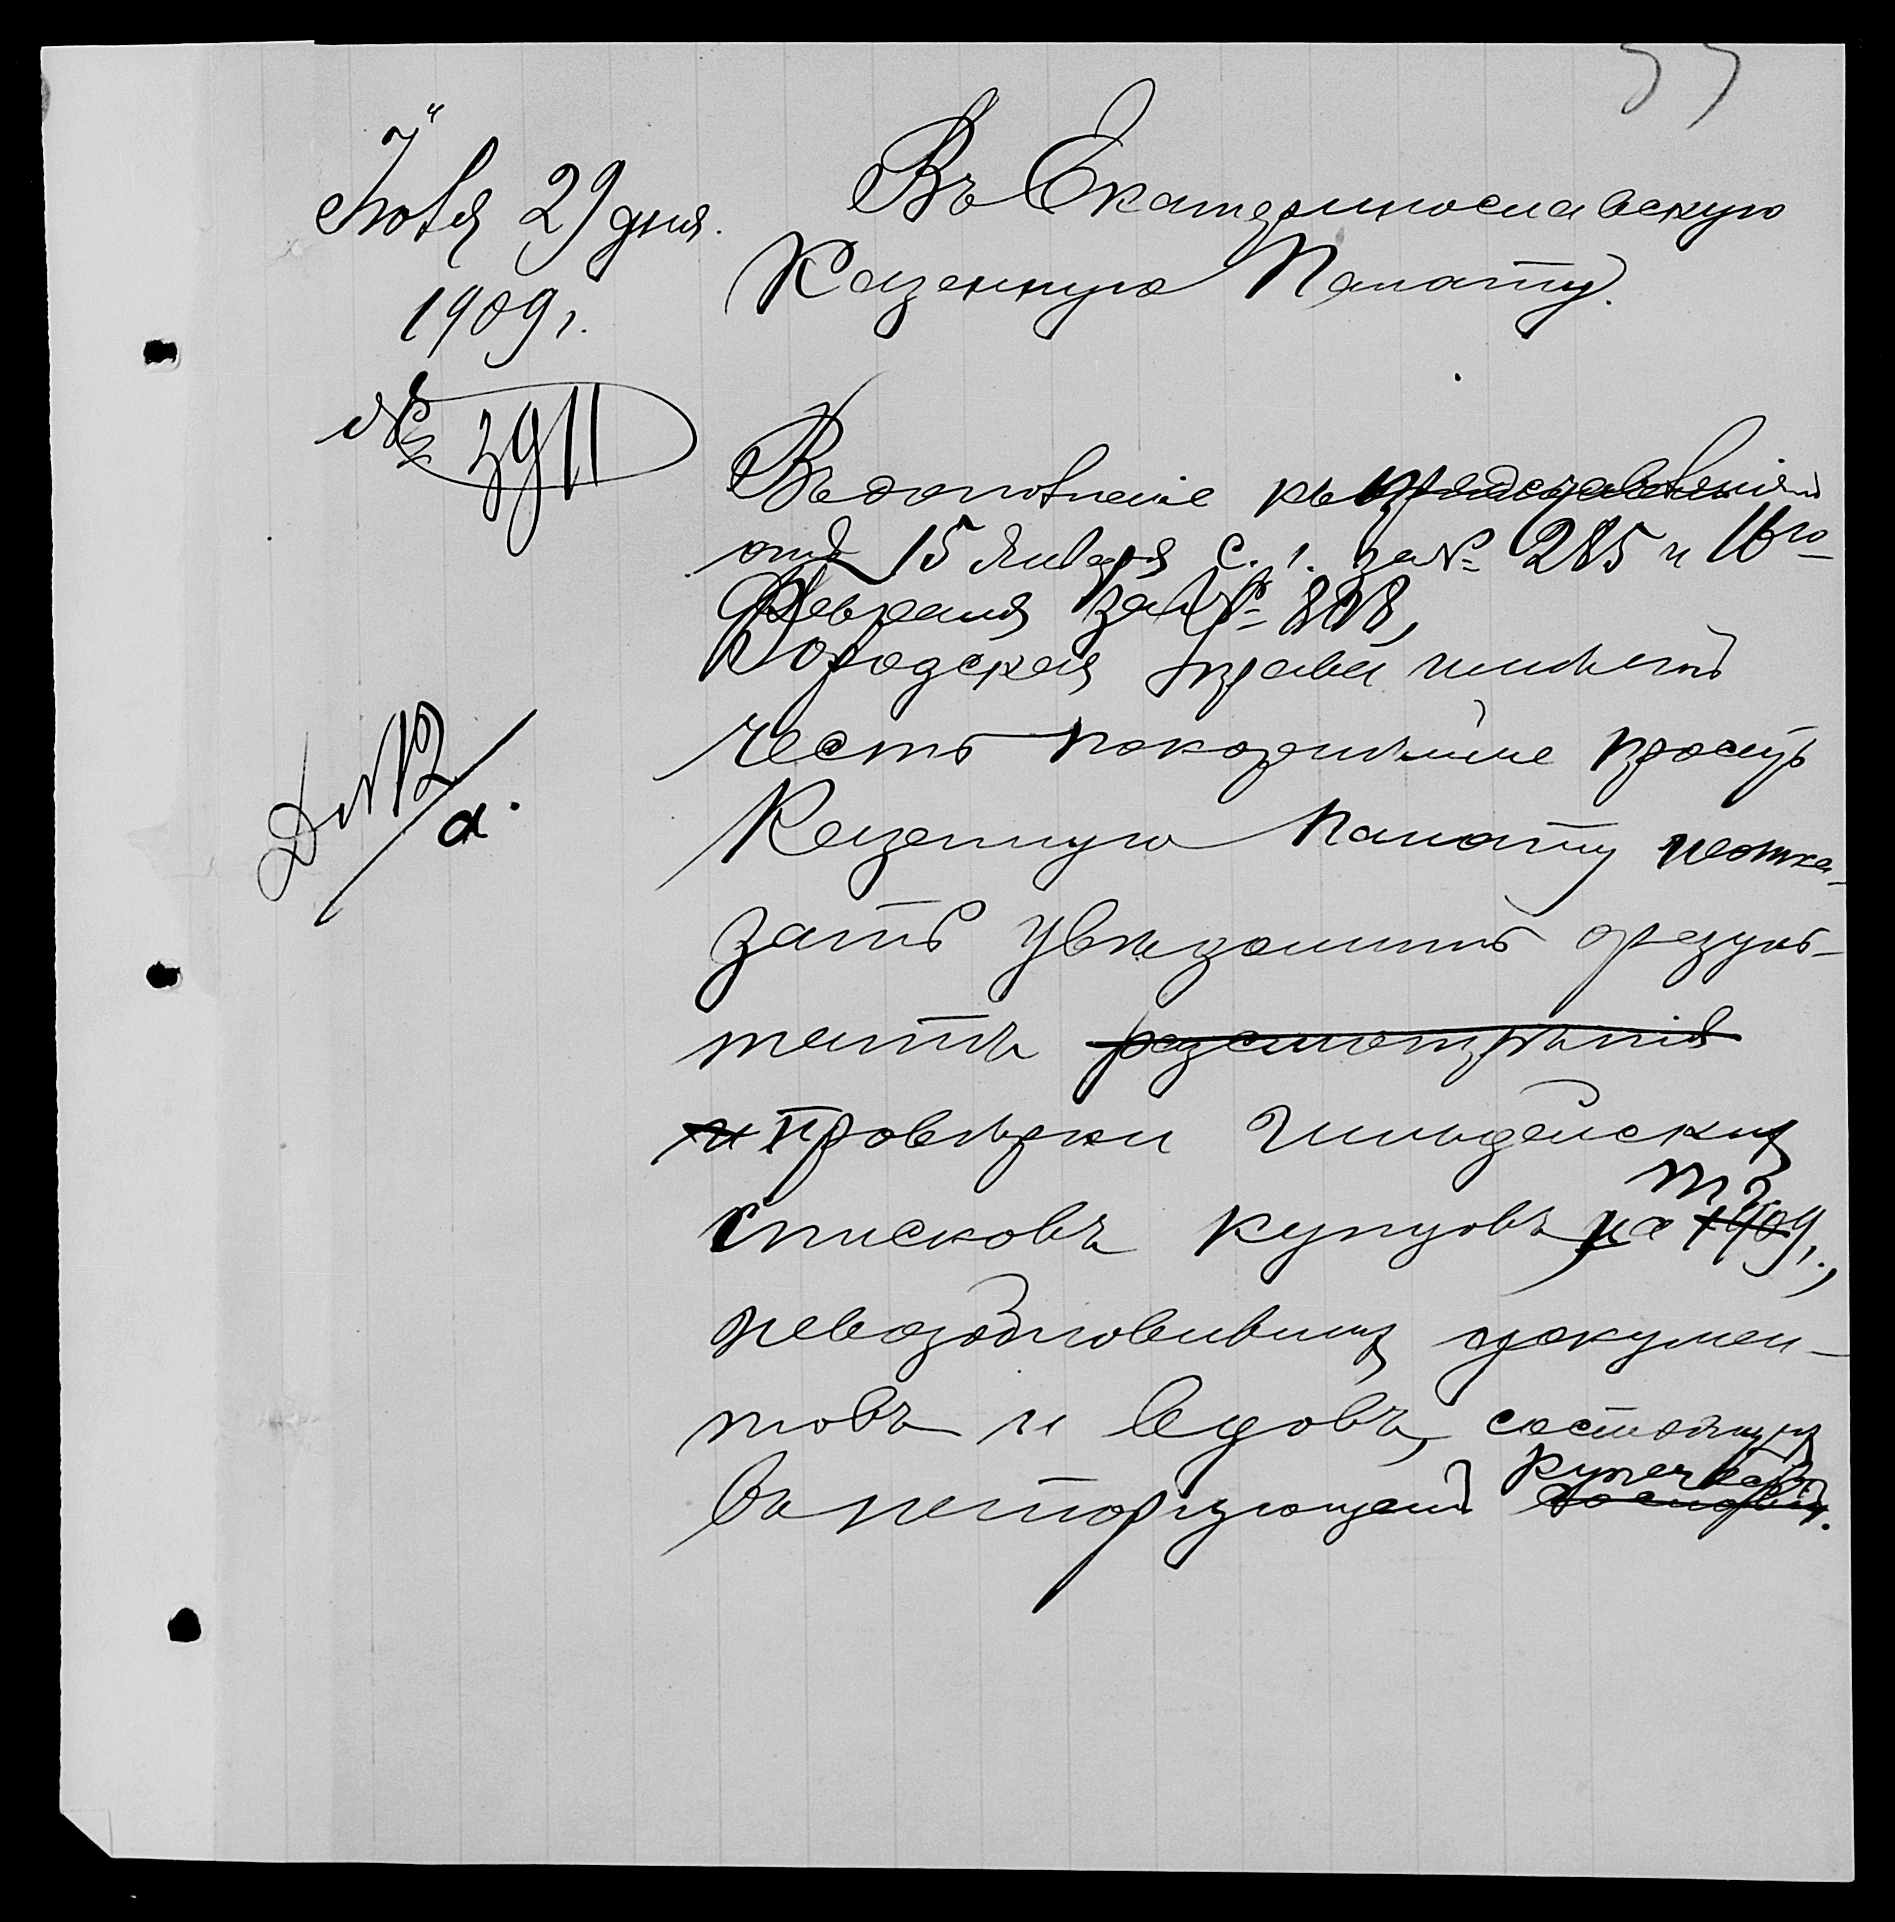 Іюня 29 дня.
1909 г.
№ 3911
Въ Екатеринославскую
Казенную Палату.
Въ дополненіе къ представленіямъ
отъ 15 Января с. г. за № 285 и 16го
Февраля за № 808,
Городская Управа имѣетъ
честь покорнѣйше просить
Казенную Палату не отка-
зать увѣдомить о резуль-
татѣ разсмотрѣнія
и провѣрки гильдейских
списковъ купцовъ на 1909 г.,
невозобновивших докумен-
товъ и вдовъ, состоящих
въ неторгующемъ
Д № 12
а.